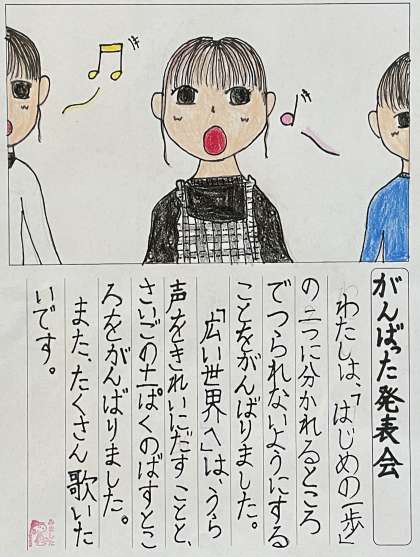 がんばった発表会
わたしは、「はじめの一歩」
の二つに分かれるところ
でつられないようにする
ことをがんばりました。
「広い世界へ」は、うら
声をきれいにだすことと、
さいごの十一ぱくのばすとこ
ろをがんばりました。
また、たくさん歌いた
いです。